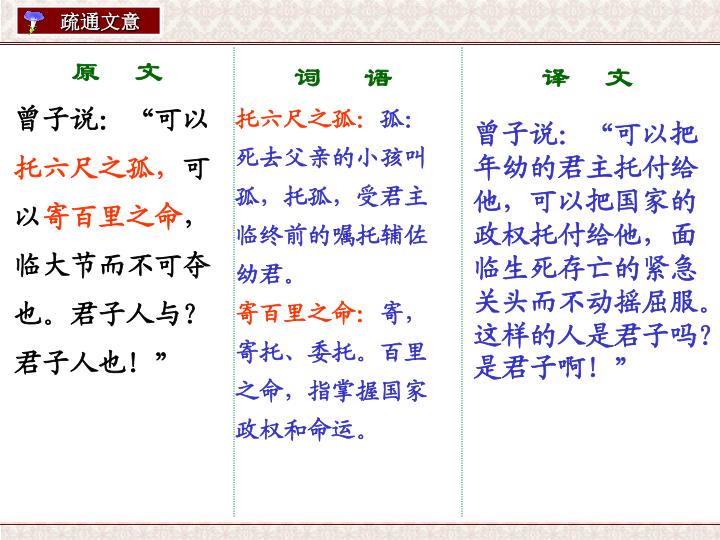 疏通文意
原 文
曾子说：“可以
托六尺之孤，可
以寄百里之命，
临大节而不可夺
也。君子人与？
君子人也！”
词 语
托六尺之孤：孤：
死去父亲的小孩叫
孤，托孤，受君主
临终前的嘱托辅佐
幼君。
寄百里之命：寄，
寄托、委托。百里
之命，指掌握国家
政权和命运。
译 文
曾子说：“可以把
年幼的君主托付给
他，可以把国家的
政权托付给他，面
临生死存亡的紧急
关头而不动摇屈服。
这样的人是君子吗？
是君子啊！”